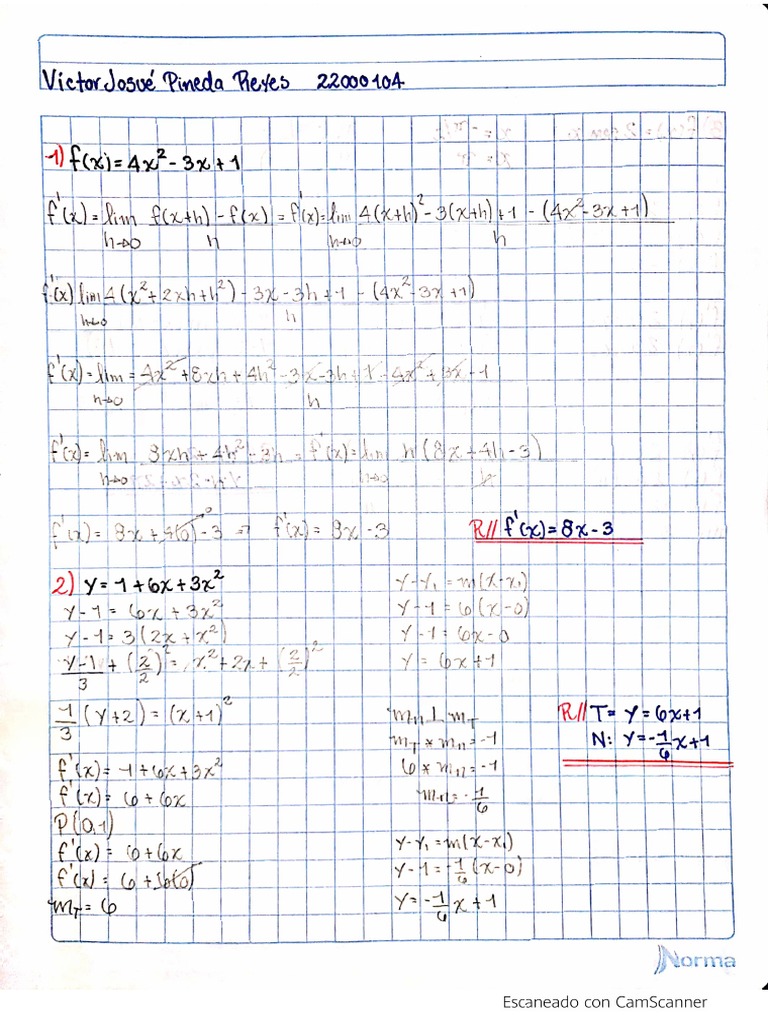 Victor Josué Pineda Reyes 22000104
1) f(x) = 4x² - 3x + 1
f'(x) = lim h→0 f(x+h) - f(x) / h = f'(x) = lim h→0 4(x+h)² - 3(x+h) + 1 - (4x² - 3x + 1) / h
f'(x) lim h→0 4(x² + 2xh + h²) - 3x - 3h + 1 - (4x² - 3x + 1) / h
f'(x) = lim h→0 = 4x² + 8xh + 4h² - 3x - 3h + 1 - 4x² + 3x - 1 / h
f'(x) = lim h→0 8xh + 4h² - 3h / h = f'(x) = lim h→0 h(8x + 4h - 3) / h
f'(x) = 8x + 4(0)⁰ - 3 ⇒ f'(x) = 8x - 3
R// f'(x) = 8x - 3
2) y = 1 + 6x + 3x²
y - 1 = 6x + 3x²
y - 1 = 3(2x + x²)
y-1/3 + (2/2)² = x² + 2x + (2/2)²
1/3 (y + 2) = (x + 1)²
f'(x) = 1 + 6x + 3x²
f'(x) = 6 + 6x
P(0,1)
f'(x) = 6 + 6x
f'(x) = 6 + 6(0)
m_T = 6
y - y₁ = m(x - x₁)
y - 1 = 6(x - 0)
y - 1 = 6x - 0
y = 6x + 1
m_n ⊥ m_T
m_T * m_n = -1
6 * m_n = -1
m_n = -1/6
y - y₁ = m(x - x₁)
y - 1 = -1/6 (x - 0)
y = -1/6 x + 1
R// T = y = 6x + 1
N: y = -1/6 x + 1
Norma
Escaneado con CamScanner